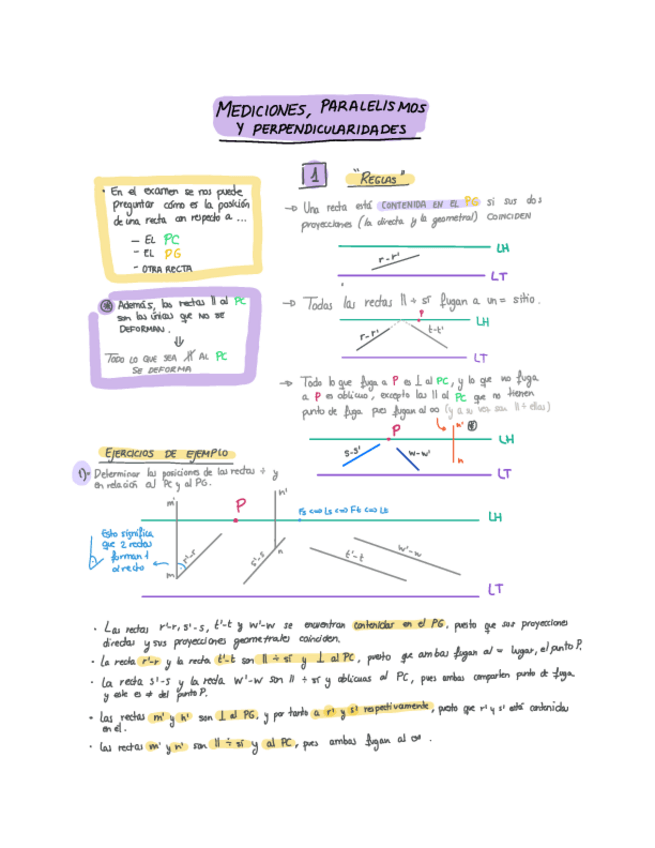 MEDICIONES, PARALELISMOS
Y PERPENDICULARIDADES
· En el examen se nos puede
preguntar cómo es la posición
de una recta con respecto a ...
- EL PC
- EL PG
- OTRA RECTA
* Además, las rectas || al PC
son las únicas que NO SE
DEFORMAN.
⇓
TODO LO QUE SEA ∦ AL PC
SE DEFORMA
1 "REGLAS"
→ Una recta está CONTENIDA EN EL PG si sus dos
proyecciones (la directa y la geometral) COINCIDEN
LH
r-r'
LT
→ Todas las rectas || ÷ sí fugan a un = sitio.
P
LH
r-r'
t-t'
LT
→ Todo lo que fuga a P es ⊥ al PC, y lo que no fuga
a P es oblicuo, excepto las || al PC que no tienen
punto de fuga pues fugan al ∞ (y a su vez son || ÷ ellas)
P
n' *
LH
s-s'
w-w'
n
LT
EJERCICIOS DE EJEMPLO
1)- Determinar las posiciones de las rectas ÷ y
en relación al PC y al PG.
m'
n'
P
Fs ⇔ Ls ⇔ Ft ⇔ Lt
LH
Esto significa
que 2 rectas
forman 1
∢ recto
m
r'-r
s'-s
n
t'-t
w'-w
LT
· Las rectas r'-r, s'-s, t'-t y w'-w se encuentran contenidas en el PG, puesto que sus proyecciones
directas y sus proyecciones geometrales coinciden.
· La recta r'-r y la recta t'-t son || ÷ sí y ⊥ al PC, puesto que ambas fugan al = lugar, el punto P.
· La recta s'-s y la recta w'-w son || ÷ sí y oblicuas al PC, pues ambas comparten punto de fuga
y este es ≠ del punto P.
· Las rectas m' y n' son ⊥ al PG, y por tanto a r' y s' respectivamente, puesto que r' y s' está contenidas
en él.
· Las rectas m' y n' son || ÷ sí y al PC, pues ambas fugan al ∞.